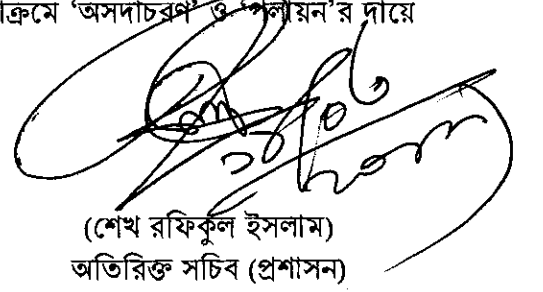 ক্রমে ‘অসদাচরণ’ ও ‘পলায়ন’র দায়ে
(শেখ রফিকুল ইসলাম)
অতিরিক্ত সচিব (প্রশাসন)